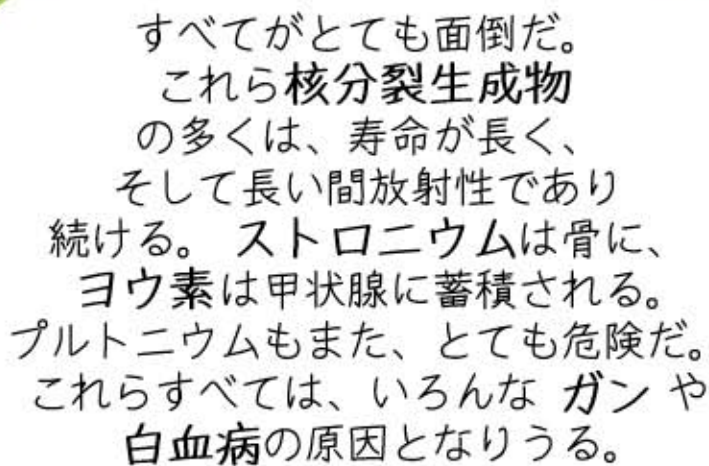 すべてがとても面倒だ。
これら核分裂生成物
の多くは、寿命が長く、
そして長い間放射性であり
続ける。 ストロニウムは骨に、
ヨウ素は甲状腺に蓄積される。
プルトニウムもまた、とても危険だ。
これらすべては、いろんな ガン や
白血病の原因となりうる。